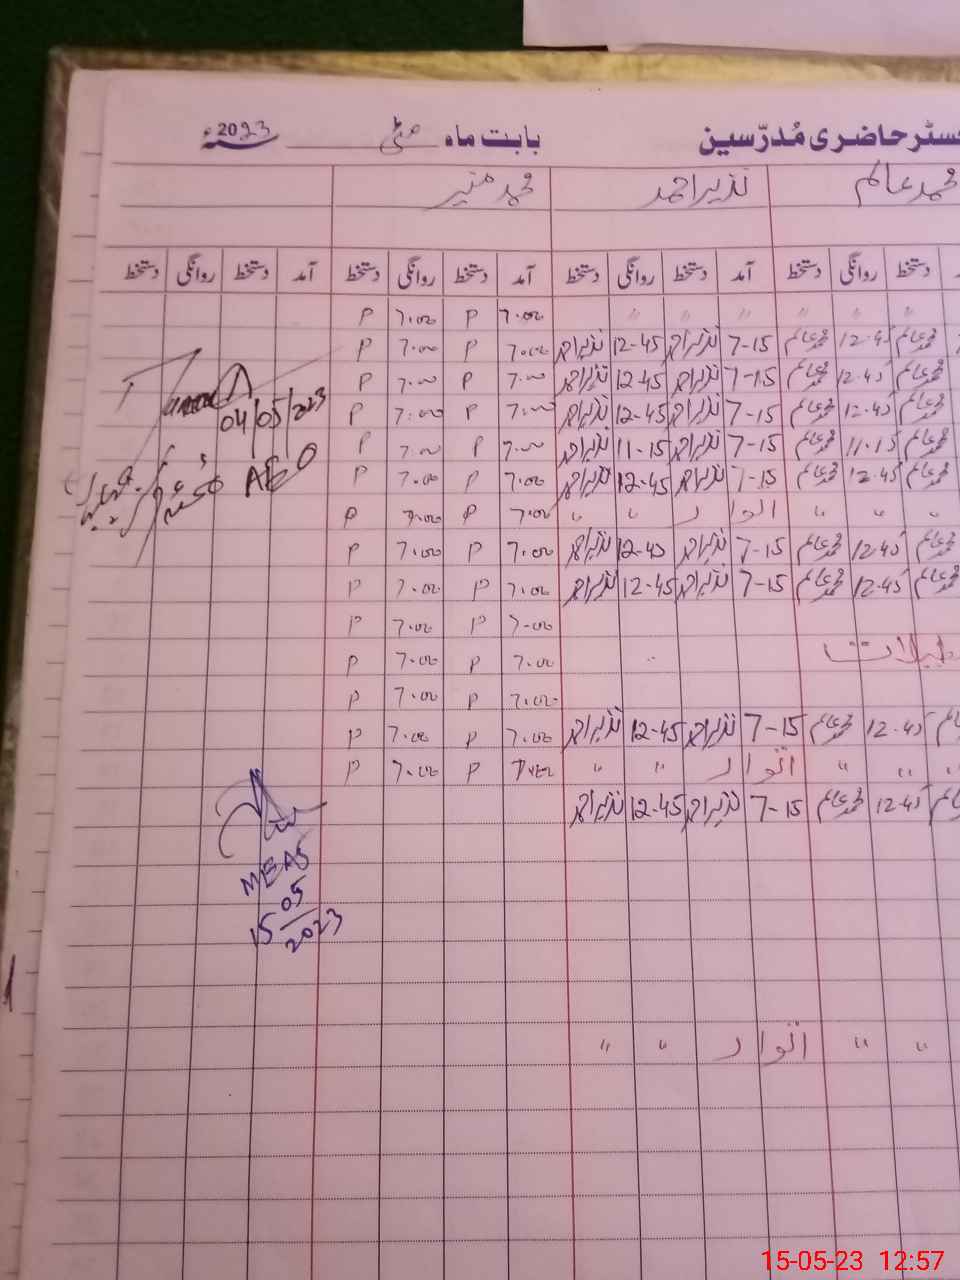 رجسٹر حاضری مُدرّسین بابت ماہ مئی 2023ء
محمد عالم نذیر احمد محمد منیر
دستخط روانگی دستخط آمد دستخط روانگی دستخط آمد دستخط روانگی دستخط آمد دستخط
" " " " " " 7.00 P 7.00 P
محمد عالم 12-45 محمد عالم 7-15 نذیر احمد 12-45 نذیر احمد 7.00 P 7.00 P
محمد عالم 12-45 محمد عالم 7-15 نذیر احمد 12-45 نذیر احمد 7.00 P 7.00 P
محمد عالم 12-45 محمد عالم 7-15 نذیر احمد 12-45 نذیر احمد 7.00 P 7.00 P
04/05/2023
محمد عالم 11-15 محمد عالم 7-15 نذیر احمد 11-15 نذیر احمد 7.00 P 7.00 P
محمد عالم 12-45 محمد عالم 7-15 نذیر احمد 12-45 نذیر احمد 7.00 P 7.00 P
AEO
" " " اتوار " " 7.00 P 7.00 P
محمد عالم 12-45 محمد عالم 7-15 نذیر احمد 12-45 نذیر احمد 7.00 P 7.00 P
محمد عالم 12-45 محمد عالم 7-15 نذیر احمد 12-45 نذیر احمد 7.00 P 7.00 P
7.00 P 7.00 P
7.00 P 7.00 P
7.00 P 7.00 P
محمد عالم 12-45 محمد عالم 7-15 نذیر احمد 12-45 نذیر احمد 7.00 P 7.00 P
" " " اتوار " " 7.00 P 7.00 P
محمد عالم 12-45 محمد عالم 7-15 نذیر احمد 12-45 نذیر احمد
15/05/2023
" " اتوار " "
15-05-23 12:57